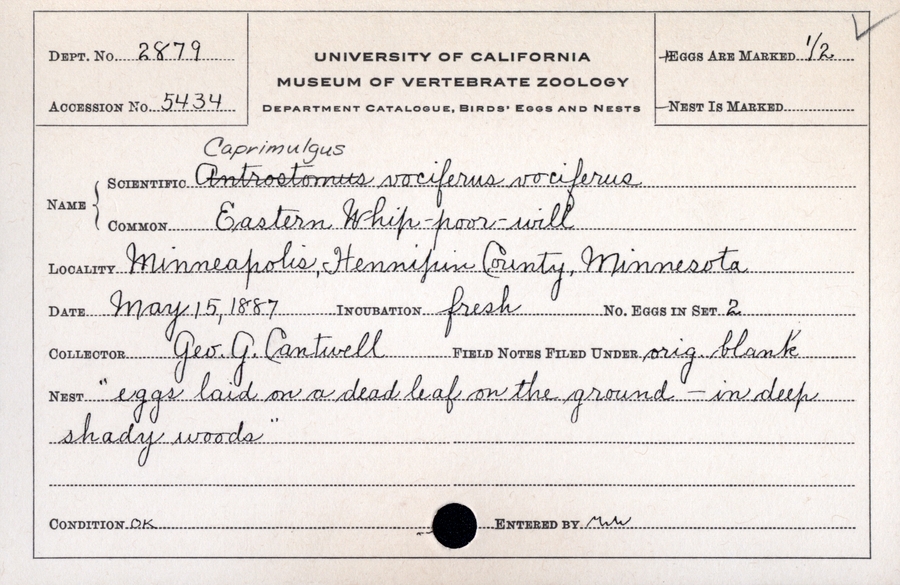 DEPT. No. 2879
ACCESSION No. 5434
UNIVERSITY OF CALIFORNIA
MUSEUM OF VERTEBRATE ZOOLOGY
DEPARTMENT CATALOGUE, BIRDS' EGGS AND NESTS
EGGS ARE MARKED 1/2
NEST IS MARKED
Caprimulgus
NAME SCIENTIFIC Antrostomus vociferus vociferus
COMMON Eastern Whip-poor-will
LOCALITY Minneapolis, Hennipin County, Minnesota
DATE May 15, 1887 INCUBATION fresh No. EGGS IN SET 2
COLLECTOR Geo. G. Cantwell FIELD NOTES FILED UNDER orig. blank
NEST "eggs laid on a dead leaf on the ground – in deep
shady woods"
CONDITION OK ENTERED BY